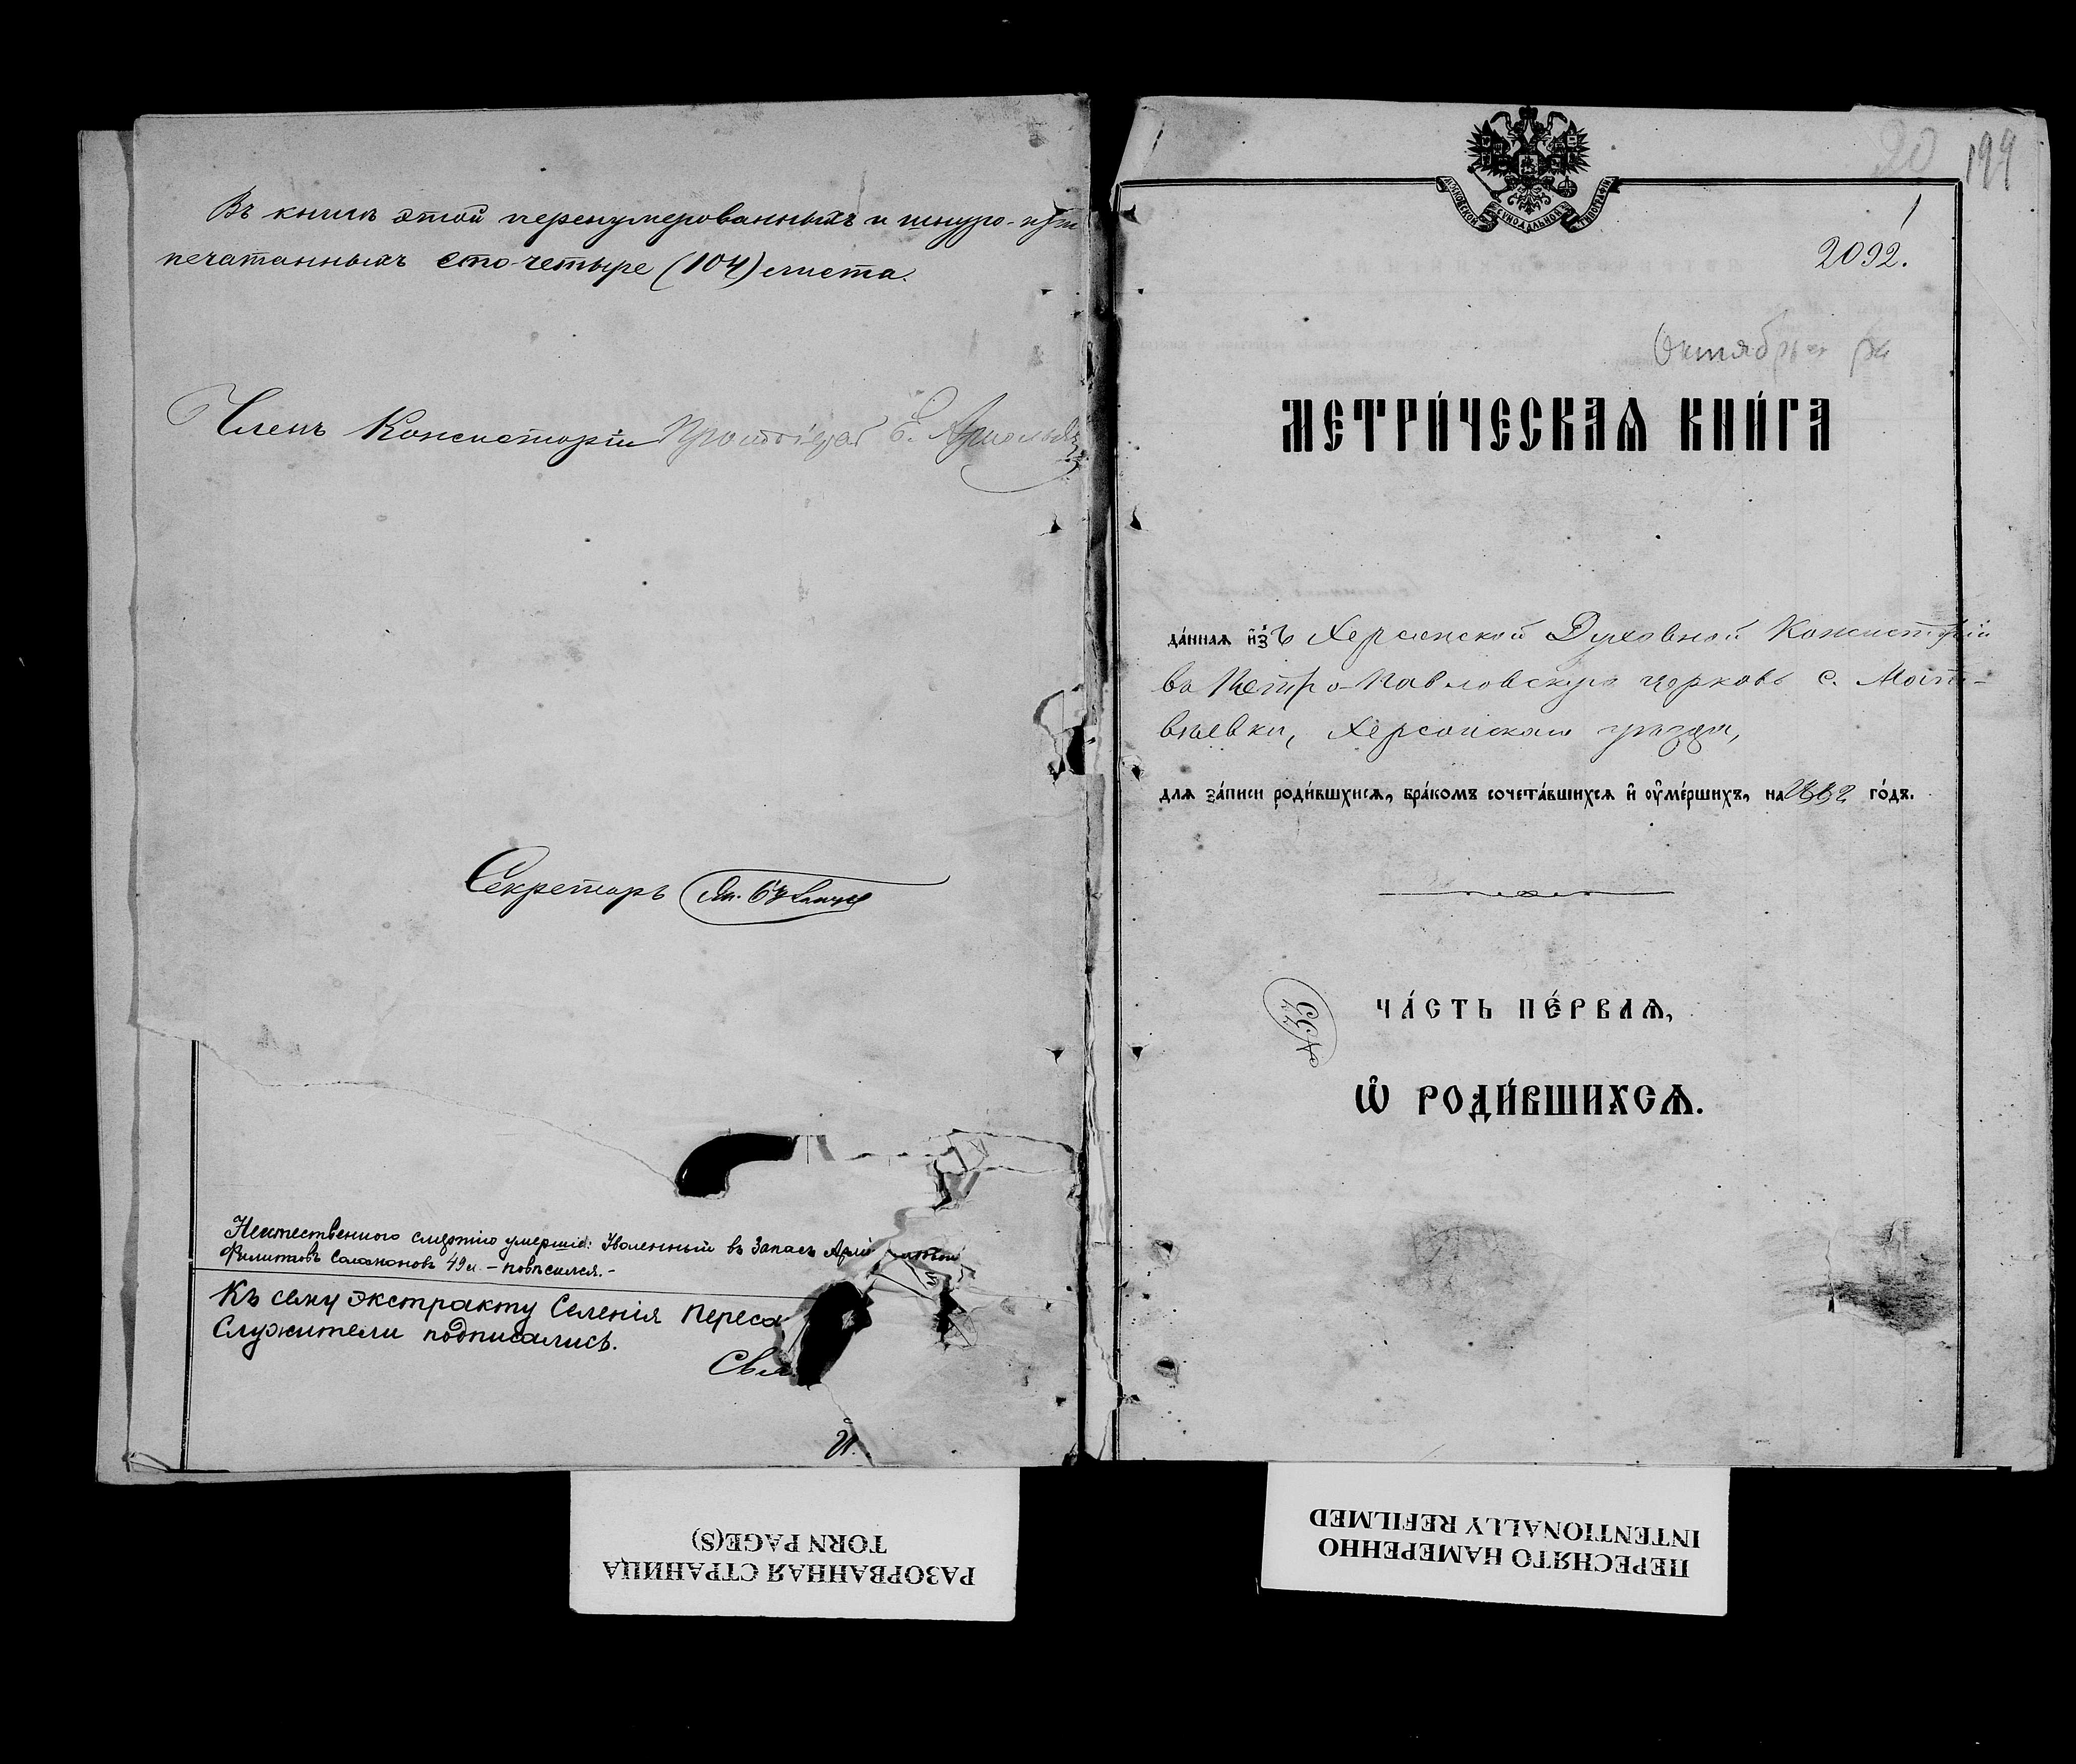 Въ книгѣ этой перенумерованныхъ и шнуро-
печатанныхъ сто-четыре (104) листа.
Членъ Консисторіи Протоіерей Е.
Секретарь
Неестественною смертію умершіе: Уволенный въ Запасъ Армі
Филиповъ Саламоновъ 49 л. – повѣсился. –
Къ сему экстракту Селенія Переса
Служители подписались.
Свя
И.
РАЗОРВАННАЯ СТРАНИЦА
TORN PAGE(S)
20 199
МОСКОВСКОЙ СѴНОДАЛЬНОЙ ТИПОГРАФІИ
1
2092.
Октябрь
МЕТРИ́ЧЕСКАѦ КНИ́ГА
да́ннаѧ и҆зъ Херсонской Духовной Консисторіи
въ Петро-Павловскую церковь с. Мат-
вѣевки, Херсонскаго уѣзда,
длѧ за́писи роди́вшхисѧ, бра́комъ сочета́вшихсѧ и҆ ᲂу҆ме́ршихъ, на 1882 го́дъ.
ЧА́СТЬ ПЕ́РВАѦ,
Ѡ҆ РОДИ́ВШИХСѦ.
ПЕРЕСНЯТО НАМЕРЕННО
INTENTIONALLY REFILMED